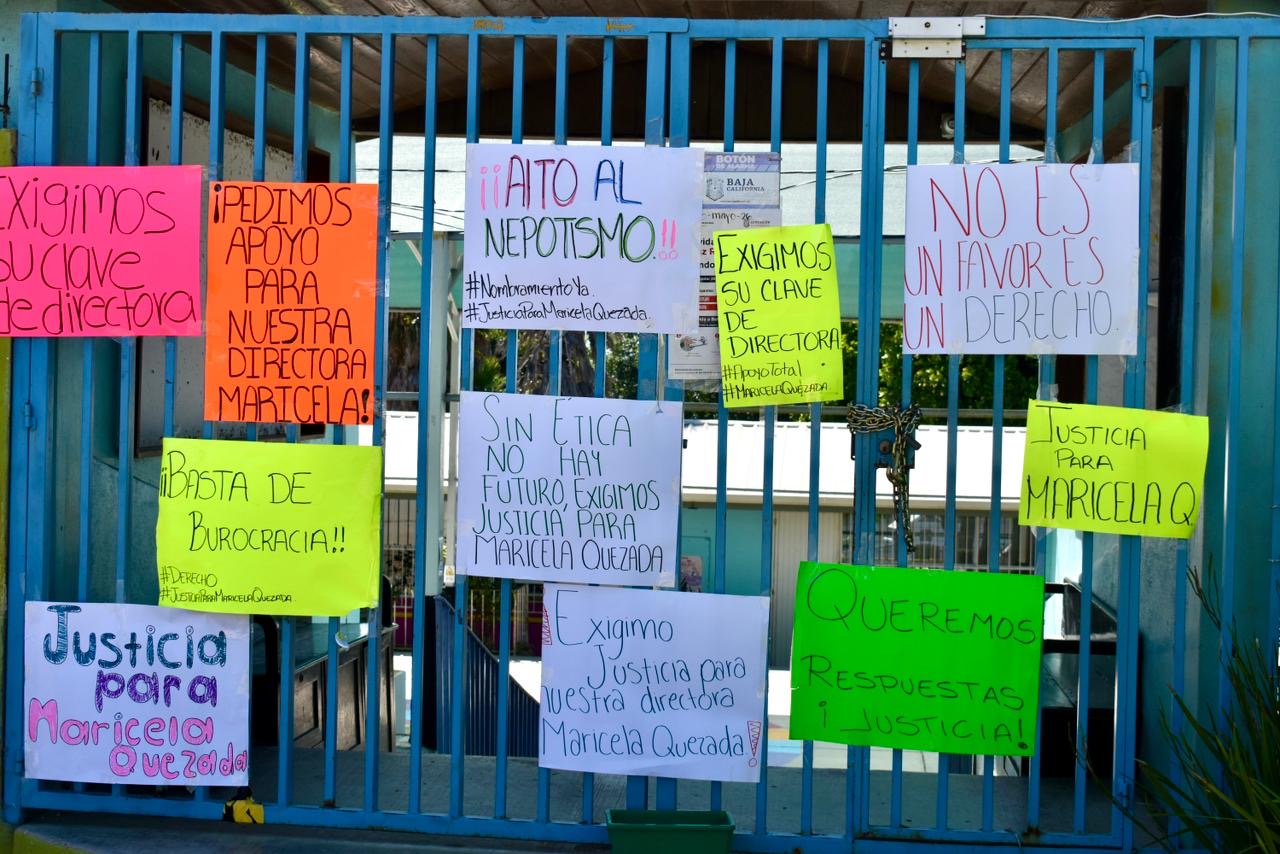 Exigimos
su clave
de directora
¡PEDIMOS
APOYO
PARA
NUESTRA
DIRECTORA
MARICELA!
¡¡AlTO AL
NEPOTISMO.!!
#NombramientoYa
#JusticiaParaMaricelaQuezada.
BOTÓN
DE ALARMA
BAJA
CALIFORNIA
EXIGIMOS
SU CLAVE
DE
DIRECTORA
#ApoyoTotal
#MARICELAQUEZADA.
NO ES
UN FAVOR ES
UN DERECHO.
¡¡BASTA DE
BUROCRACIA!!
#DERECHO
#JUSTICIAPARAMARICELAQUEZADA.
SIN ÉTICA
NO HAY
FUTURO, EXIGIMOS
JUSTICIA PARA
MARICELA QUEZADA
JUSTICIA
PARA
MARICELA Q
Justicia
para
Maricela
Quezada
Exigimo
Justicia para
nuestra directora
Maricela Quezada!
QUEREMOS
RESPUESTAS
¡JUSTICIA!